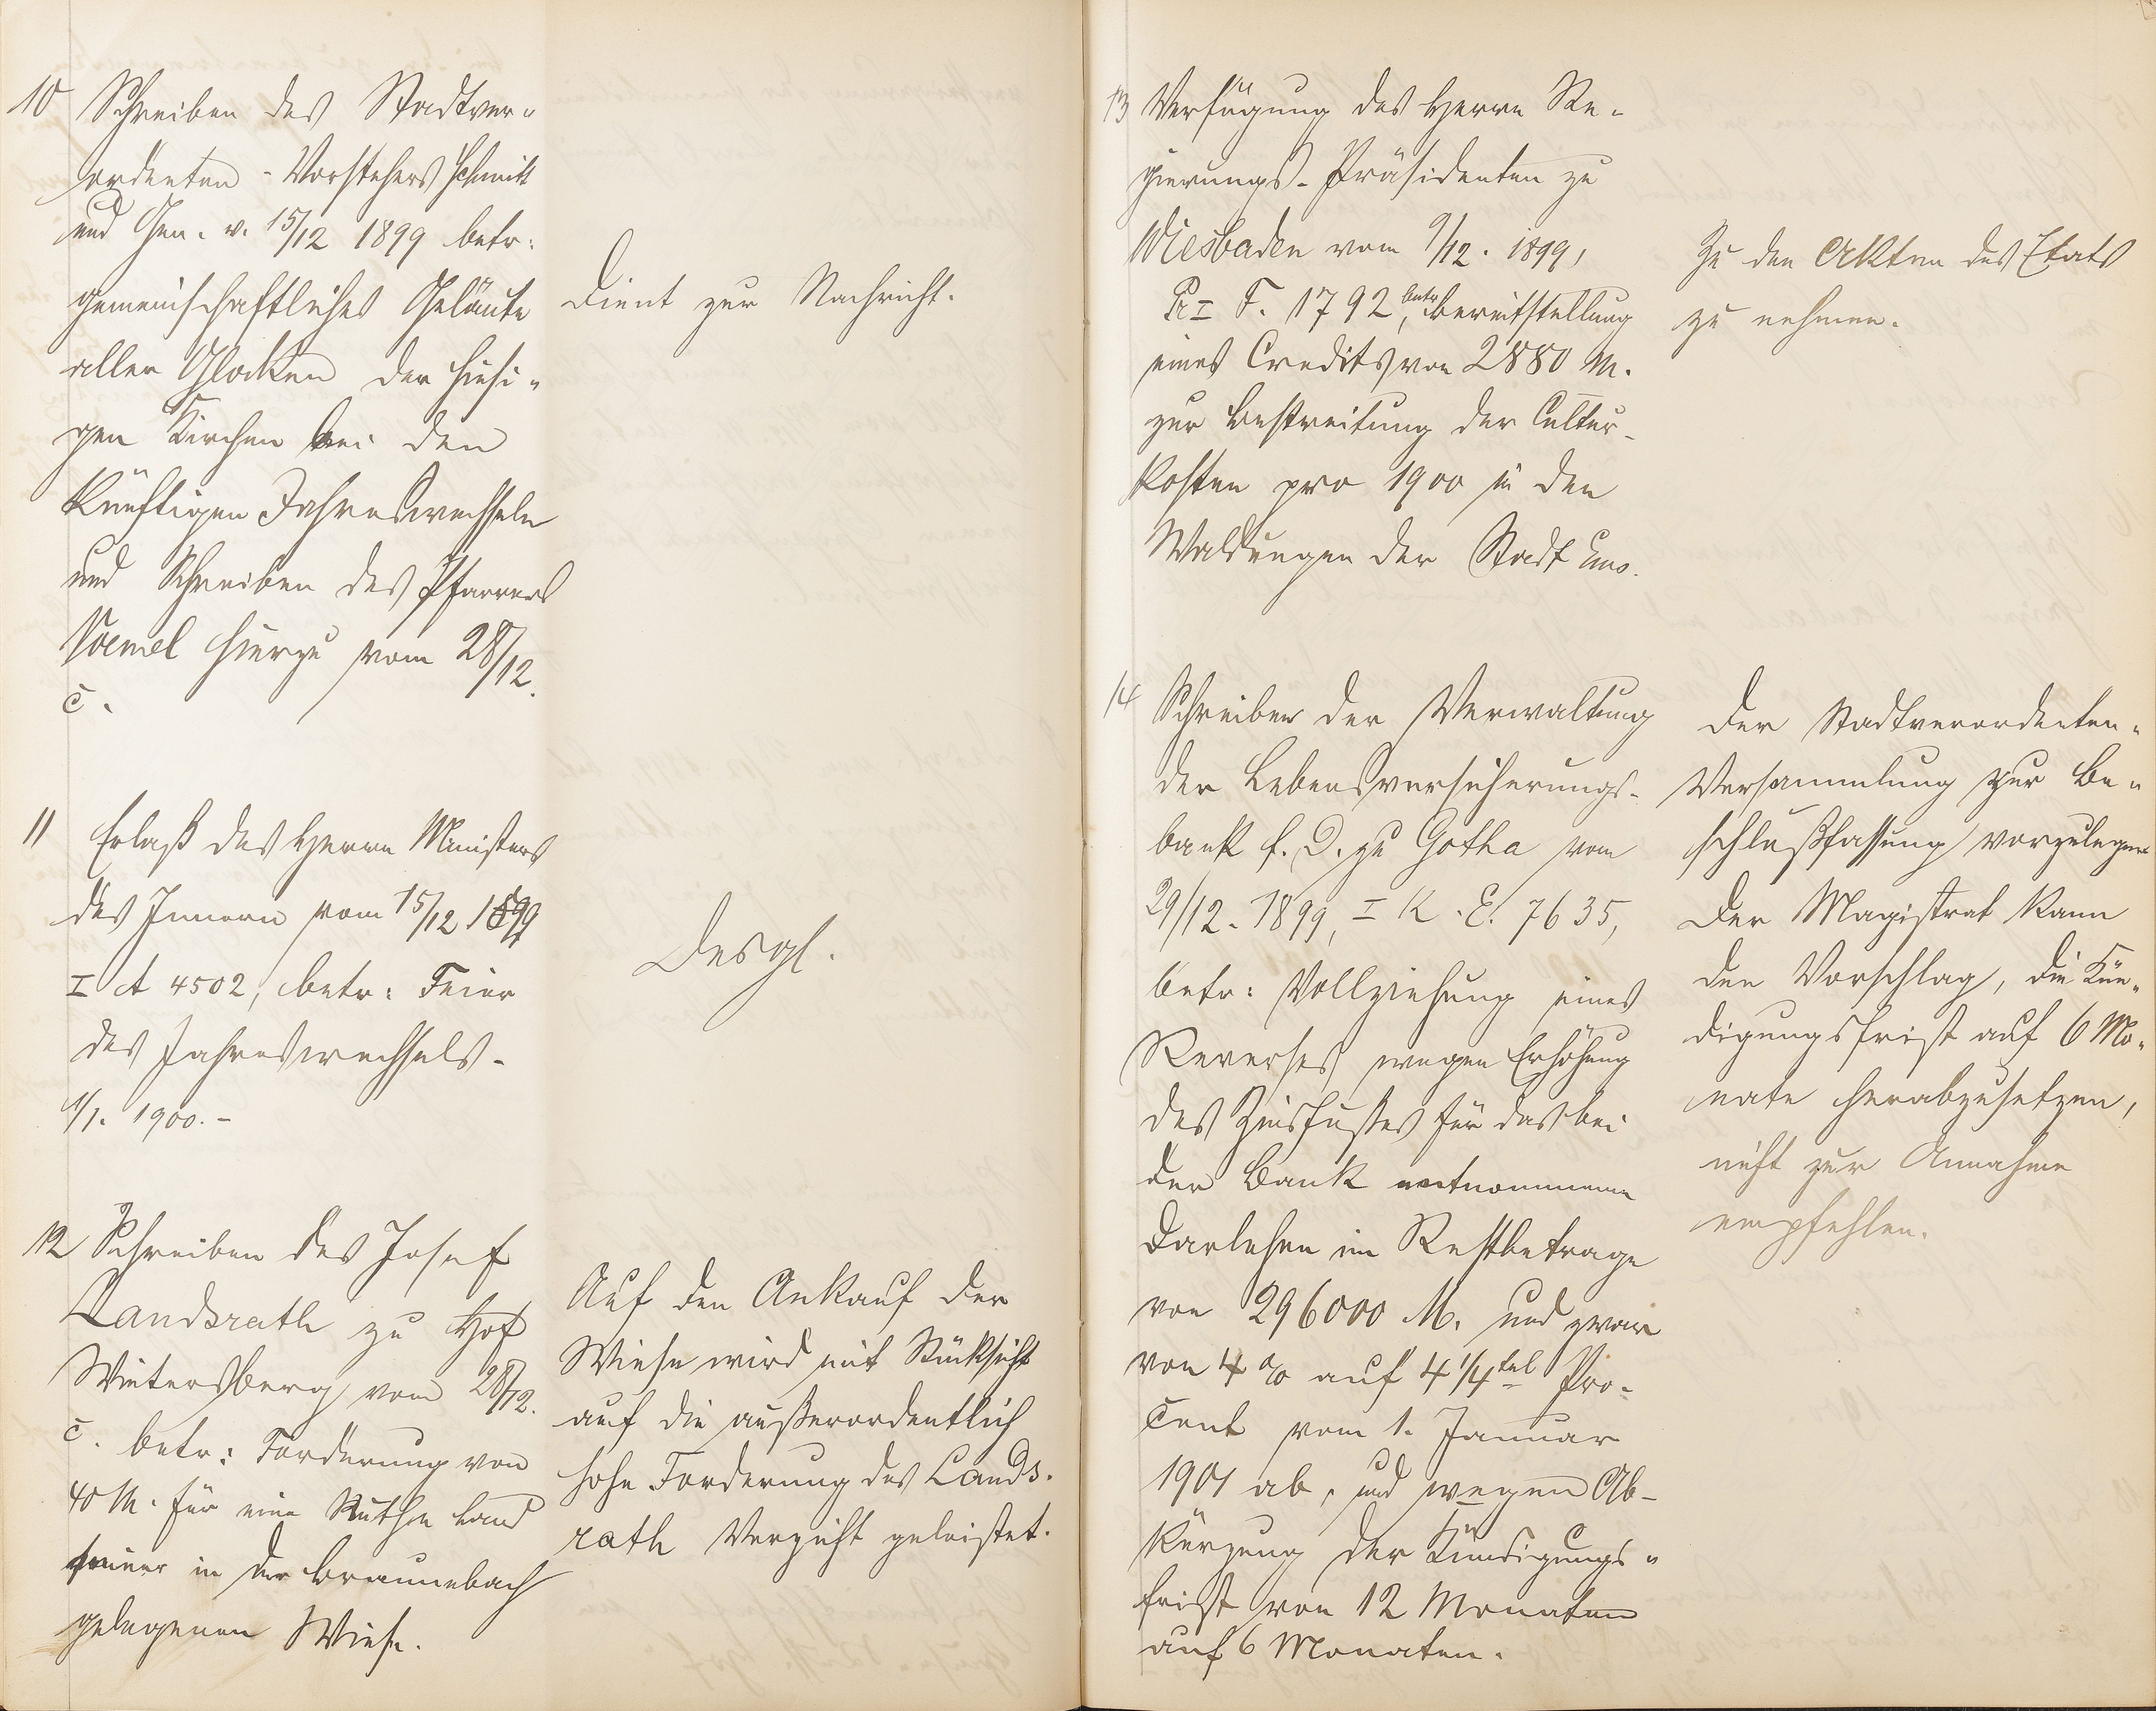 10 Schreiben des Stadtver-
ordneten-Vorstehers Schmitt
und Gen. v. 15/12 1899 betr:
gemeinschaftliches Geläute
aller Glocken der hiesi-
gen Kirchen bei den
künftigen Jahreswechseln
und Schreiben des Pfarrers
Vömel hierzu vom 28/12.
c.
Dient zur Nachricht.
11 Erlaß des Herrn Ministers
des Innern vom 15/12 1899
I A 4502, betr: Feier
des Jahreswechsels-
1/1. 1900.-
Desgl.
12 Schreiben des Josef
Landsrath zu Hof
Wintersberg vom 28/12.
c. betr: Forderung von
40 M. für eine Ruthe Land
seiner in der Braunebach
gelegenen Wiese.
Auf den Ankauf der
Wiese wird mit Rücksicht
auf die außerordentlich
hohe Forderung des Lands-
rath Verzicht geleistet.
13 Verfügung des Herrn Re-
gierungs-Präsidenten zu
Wiesbaden vom 9/12. 1899,
Pr I F. 1792, betr. Bereitstellung
eines Credits von 2880 M.
zur Bestreitung der Cultur-
kosten pro 1900 in den
Waldungen der Stadt Ems.
Zu den Akten des Etats
zu nehmen.
14 Schreiben der Verwaltung
der Lebensversicherungs-
bank f. D. zu Gotha vom
29/12. 1899, I K. E. 7635,
betr: Vollziehung eines
Reverses wegen Erhöhung
des Zinsfußes für das bei
der Bank entnommene
Darlehen im Restbetrage
von 296000 M. und zwar
von 4% auf 4 1/4tel Pro-
cent vom 1. Januar
1901 ab, und wegen Ab-
kürzung der Kündigungs-
frist von 12 Monaten
auf 6 Monaten.
Der Stadtverordneten-
Versammlung zur Be-
schlußfassung vorzulegen
Der Magistrat kann
den Vorschlag, die Kün-
digungsfrist auf 6 Mo-
nate herabzusetzen,
nicht zur Annahme
empfehlen.